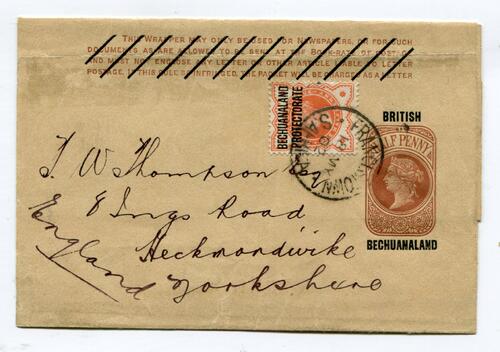 THIS WRAPPER MAY ONLY BE USED FOR NEWSPAPERS, OR FOR SUCH
DOCUMENTS AS ARE ALLOWED TO BE SENT AT THE BOOK-RATE OF POSTAGE,
AND MUST NOT ENCLOSE ANY LETTER OR OTHER ARTICLE LIABLE TO LETTER
POSTAGE. IF THIS RULE BE INFRINGED, THE PACKET WILL BE CHARGED AS A LETTER
BECHUANALAND
PROTECTORATE
BRITISH
HALF PENNY
BECHUANALAND
J. W Thompson Esq
8 Ings Road
Heckmondwike
Yorkshire
England